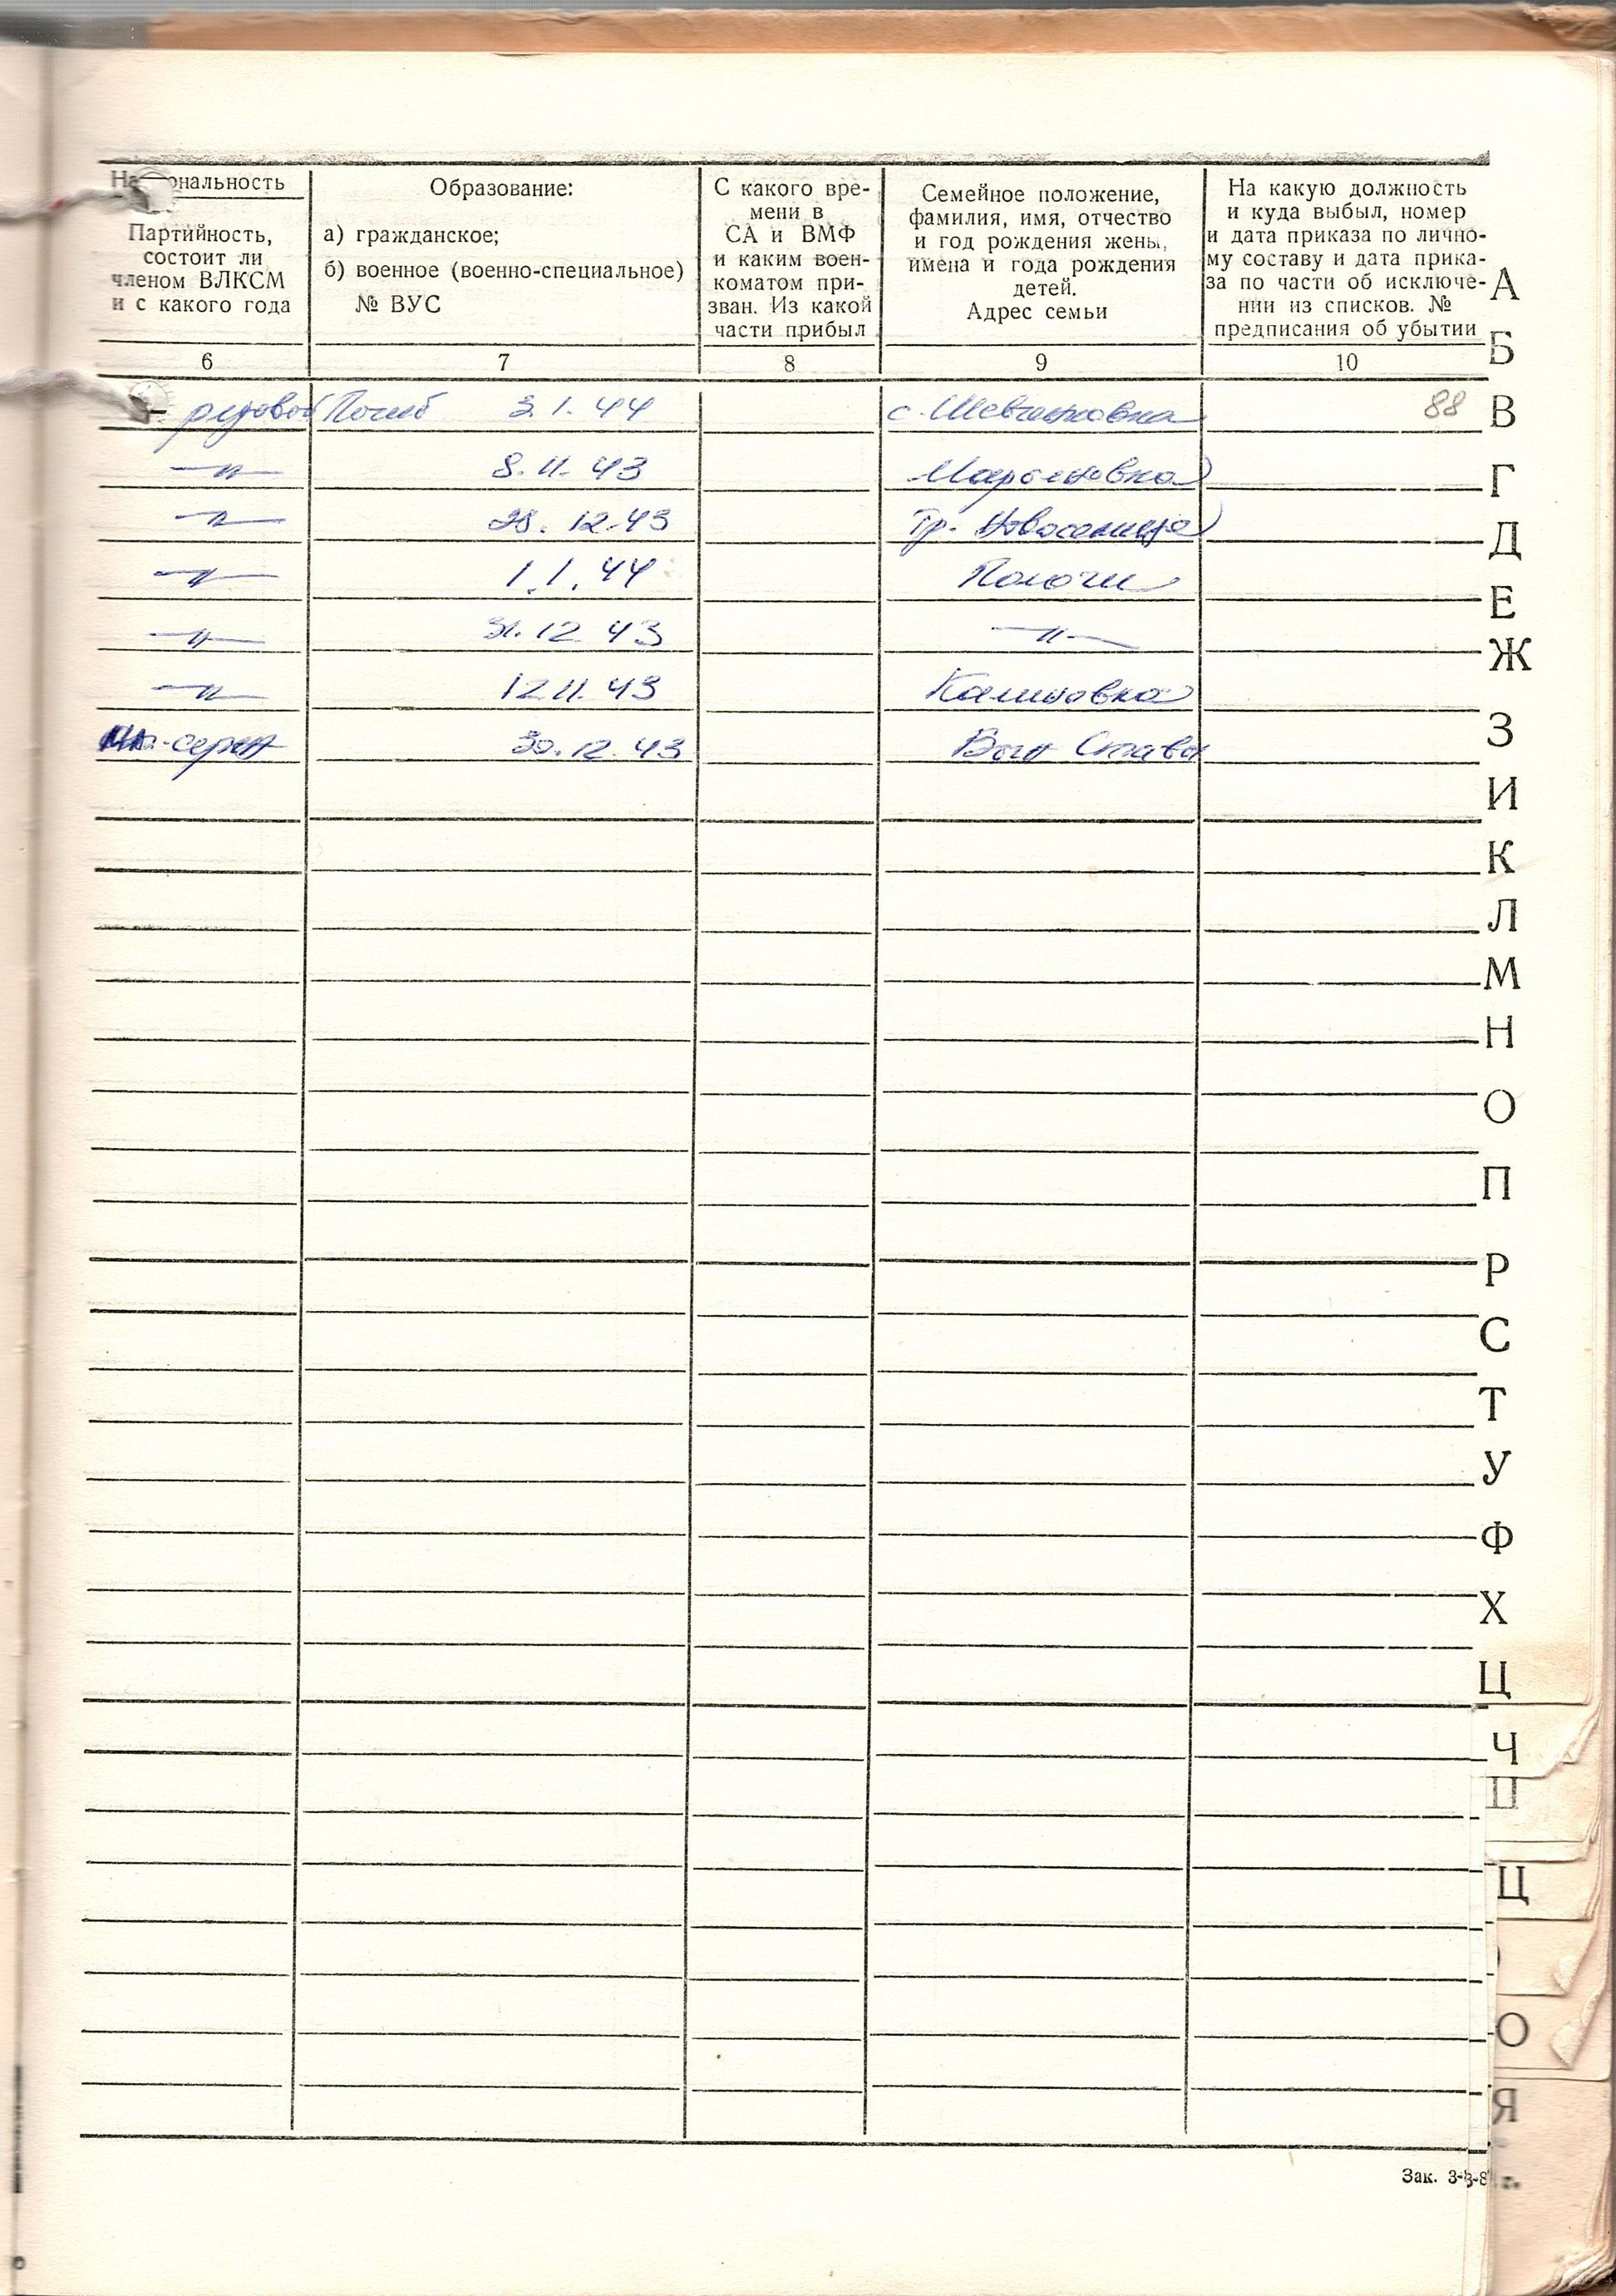 Национальность
Партийность,
состоит ли
членом ВЛКСМ
и с какого года
Образование:
а) гражданское;
б) военное (военно-специальное)
№ ВУС
С какого вре-
мени в
СА и ВМФ
и каким воен-
коматом при-
зван. Из какой
части прибыл
Семейное положение,
фамилия, имя, отчество
и год рождения жены,
имена и года рождения
детей.
Адрес семьи
На какую должность
и куда выбыл, номер
и дата приказа по лично-
му составу и дата прика-
за по части об исключе-
нии из списков. №
предписания об убытии
6 7 8 9 10
рядовой Погиб 3.1.44 с. Шевченковка 88
—"— 8.11.43 Марьяновка
—"— 28.12.43 Гр. Новоселица
—"— 1.1.44 Пологи
—"— 31.12.43 —"—
—"— 12.11.43 Калиновка
серж 30.12.43 Ставы
А
Б
В
Г
Д
Е
Ж
З
И
К
Л
М
Н
О
П
Р
С
Т
У
Ф
Х
Ц
Ч
Ю
Я
Зак. 3-